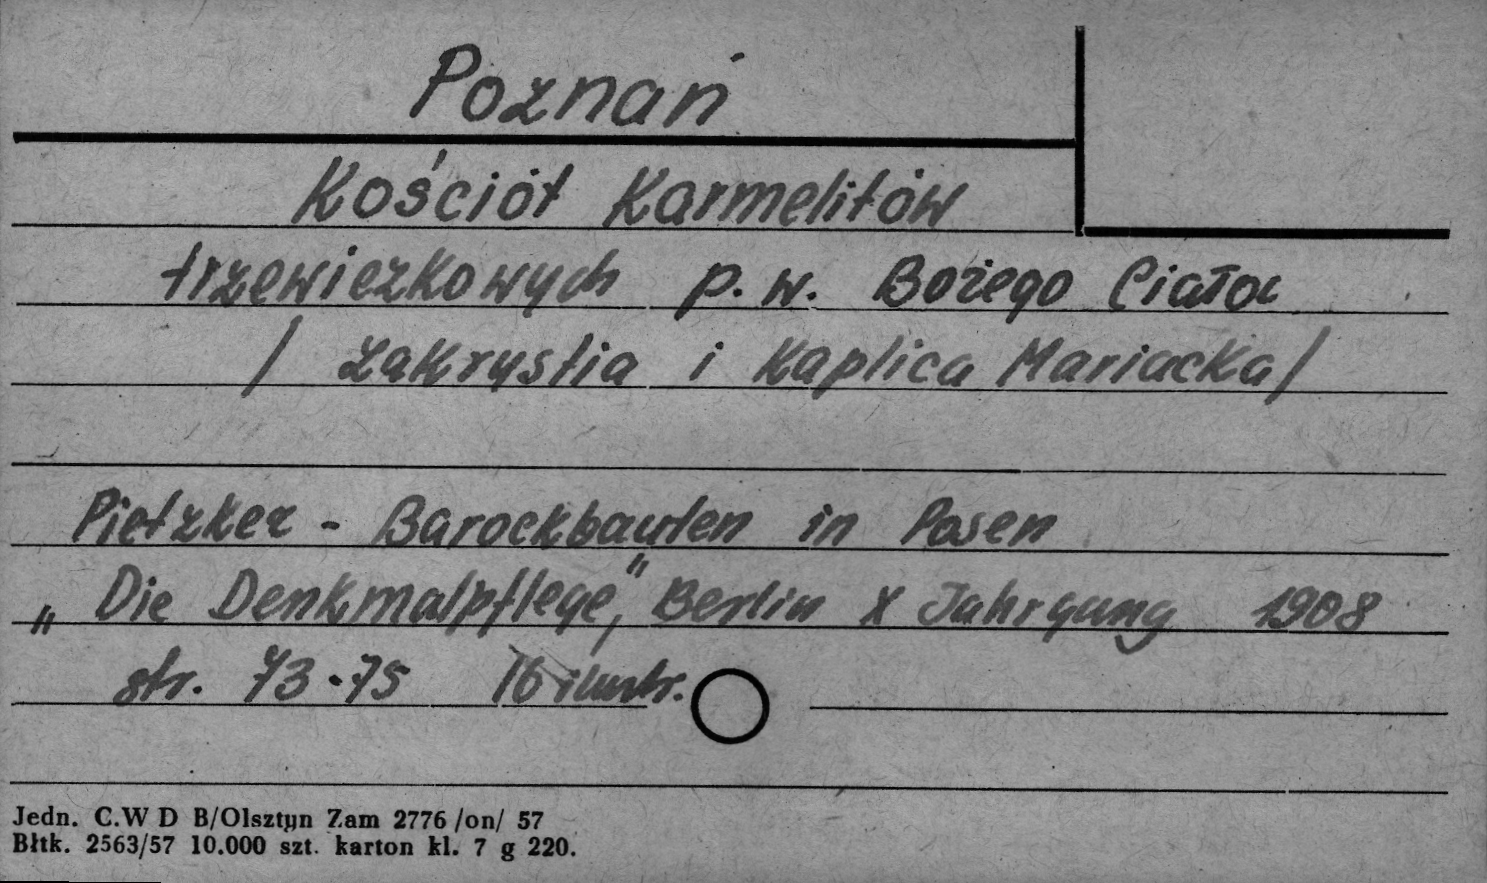 Poznań
Kościół Karmelitów
trzewiczkowych p.w. Bożego Ciała
/ zakrystia i Kaplica Mariacka/
Pietzker - Barockbauten in Posen
„Die Denkmalpflege", Berlin X Jahrgang 1908
str. 73-75 16 ilustr.
Jedn. C.W D B/Olsztyn Zam 2776 /on/ 57
Błtk. 2563/57 10.000 szt. karton kl. 7 g 220.